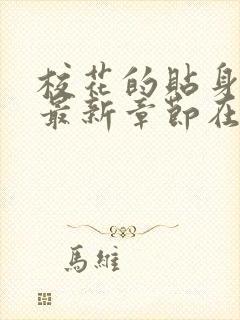 校花的貼身
最新章節在
馬維